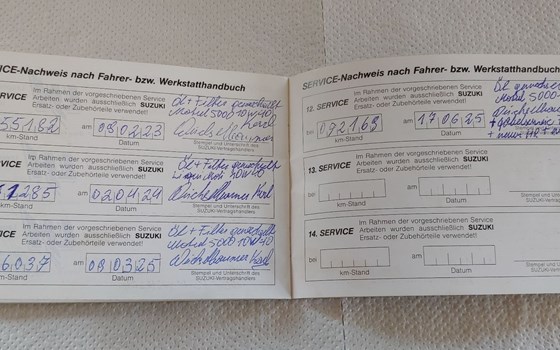 ICE-Nachweis nach Fahrer- bzw. Werkstatthandbuch
SERVICE
Im Rahmen der vorgeschriebenen Service
Arbeiten wurden ausschließlich SUZUKI
Ersatz- oder Zubehörteile verwendet!
Öl + Filter gewechselt
Mobil 5000 10W40
55182 am 080223
km-Stand Datum
Stempel und Unterschrift des
SUZUKI-Vertragshändlers
SERVICE
Im Rahmen der vorgeschriebenen Service
Arbeiten wurden ausschließlich SUZUKI
Ersatz- oder Zubehörteile verwendet!
Öl + Filter gewechselt
10W40
1285 am 020424
km-Stand Datum
Karl
Stempel und Unterschrift des
SUZUKI-Vertragshändlers
SERVICE
Im Rahmen der vorgeschriebenen Service
Arbeiten wurden ausschließlich SUZUKI
Ersatz- oder Zubehörteile verwendet!
Öl + Filter gewechselt
Mobil 5000 10W40
6037 am 080325
km-Stand Datum
Karl
Stempel und Unterschrift des
SUZUKI-Vertragshändlers
SERVICE-Nachweis nach Fahrer- bzw. Werkstatthandbuch
12. SERVICE
Im Rahmen der vorgeschriebenen Service
Arbeiten wurden ausschließlich SUZUKI
Ersatz- oder Zubehörteile verwendet!
Öl
Mobil 5000
bei 092168 am 170625
km-Stand Datum
13. SERVICE
Im Rahmen der vorgeschriebenen Service
Arbeiten wurden ausschließlich SUZUKI
Ersatz- oder Zubehörteile verwendet!
bei am
km-Stand Datum
Stempel und U
SUZUKI-Ve
14. SERVICE
Im Rahmen der vorgeschriebenen Service
Arbeiten wurden ausschließlich SUZUKI
Ersatz- oder Zubehörteile verwendet!
bei am
km-Stand Datum
Stempel und U
SUZUKI-V